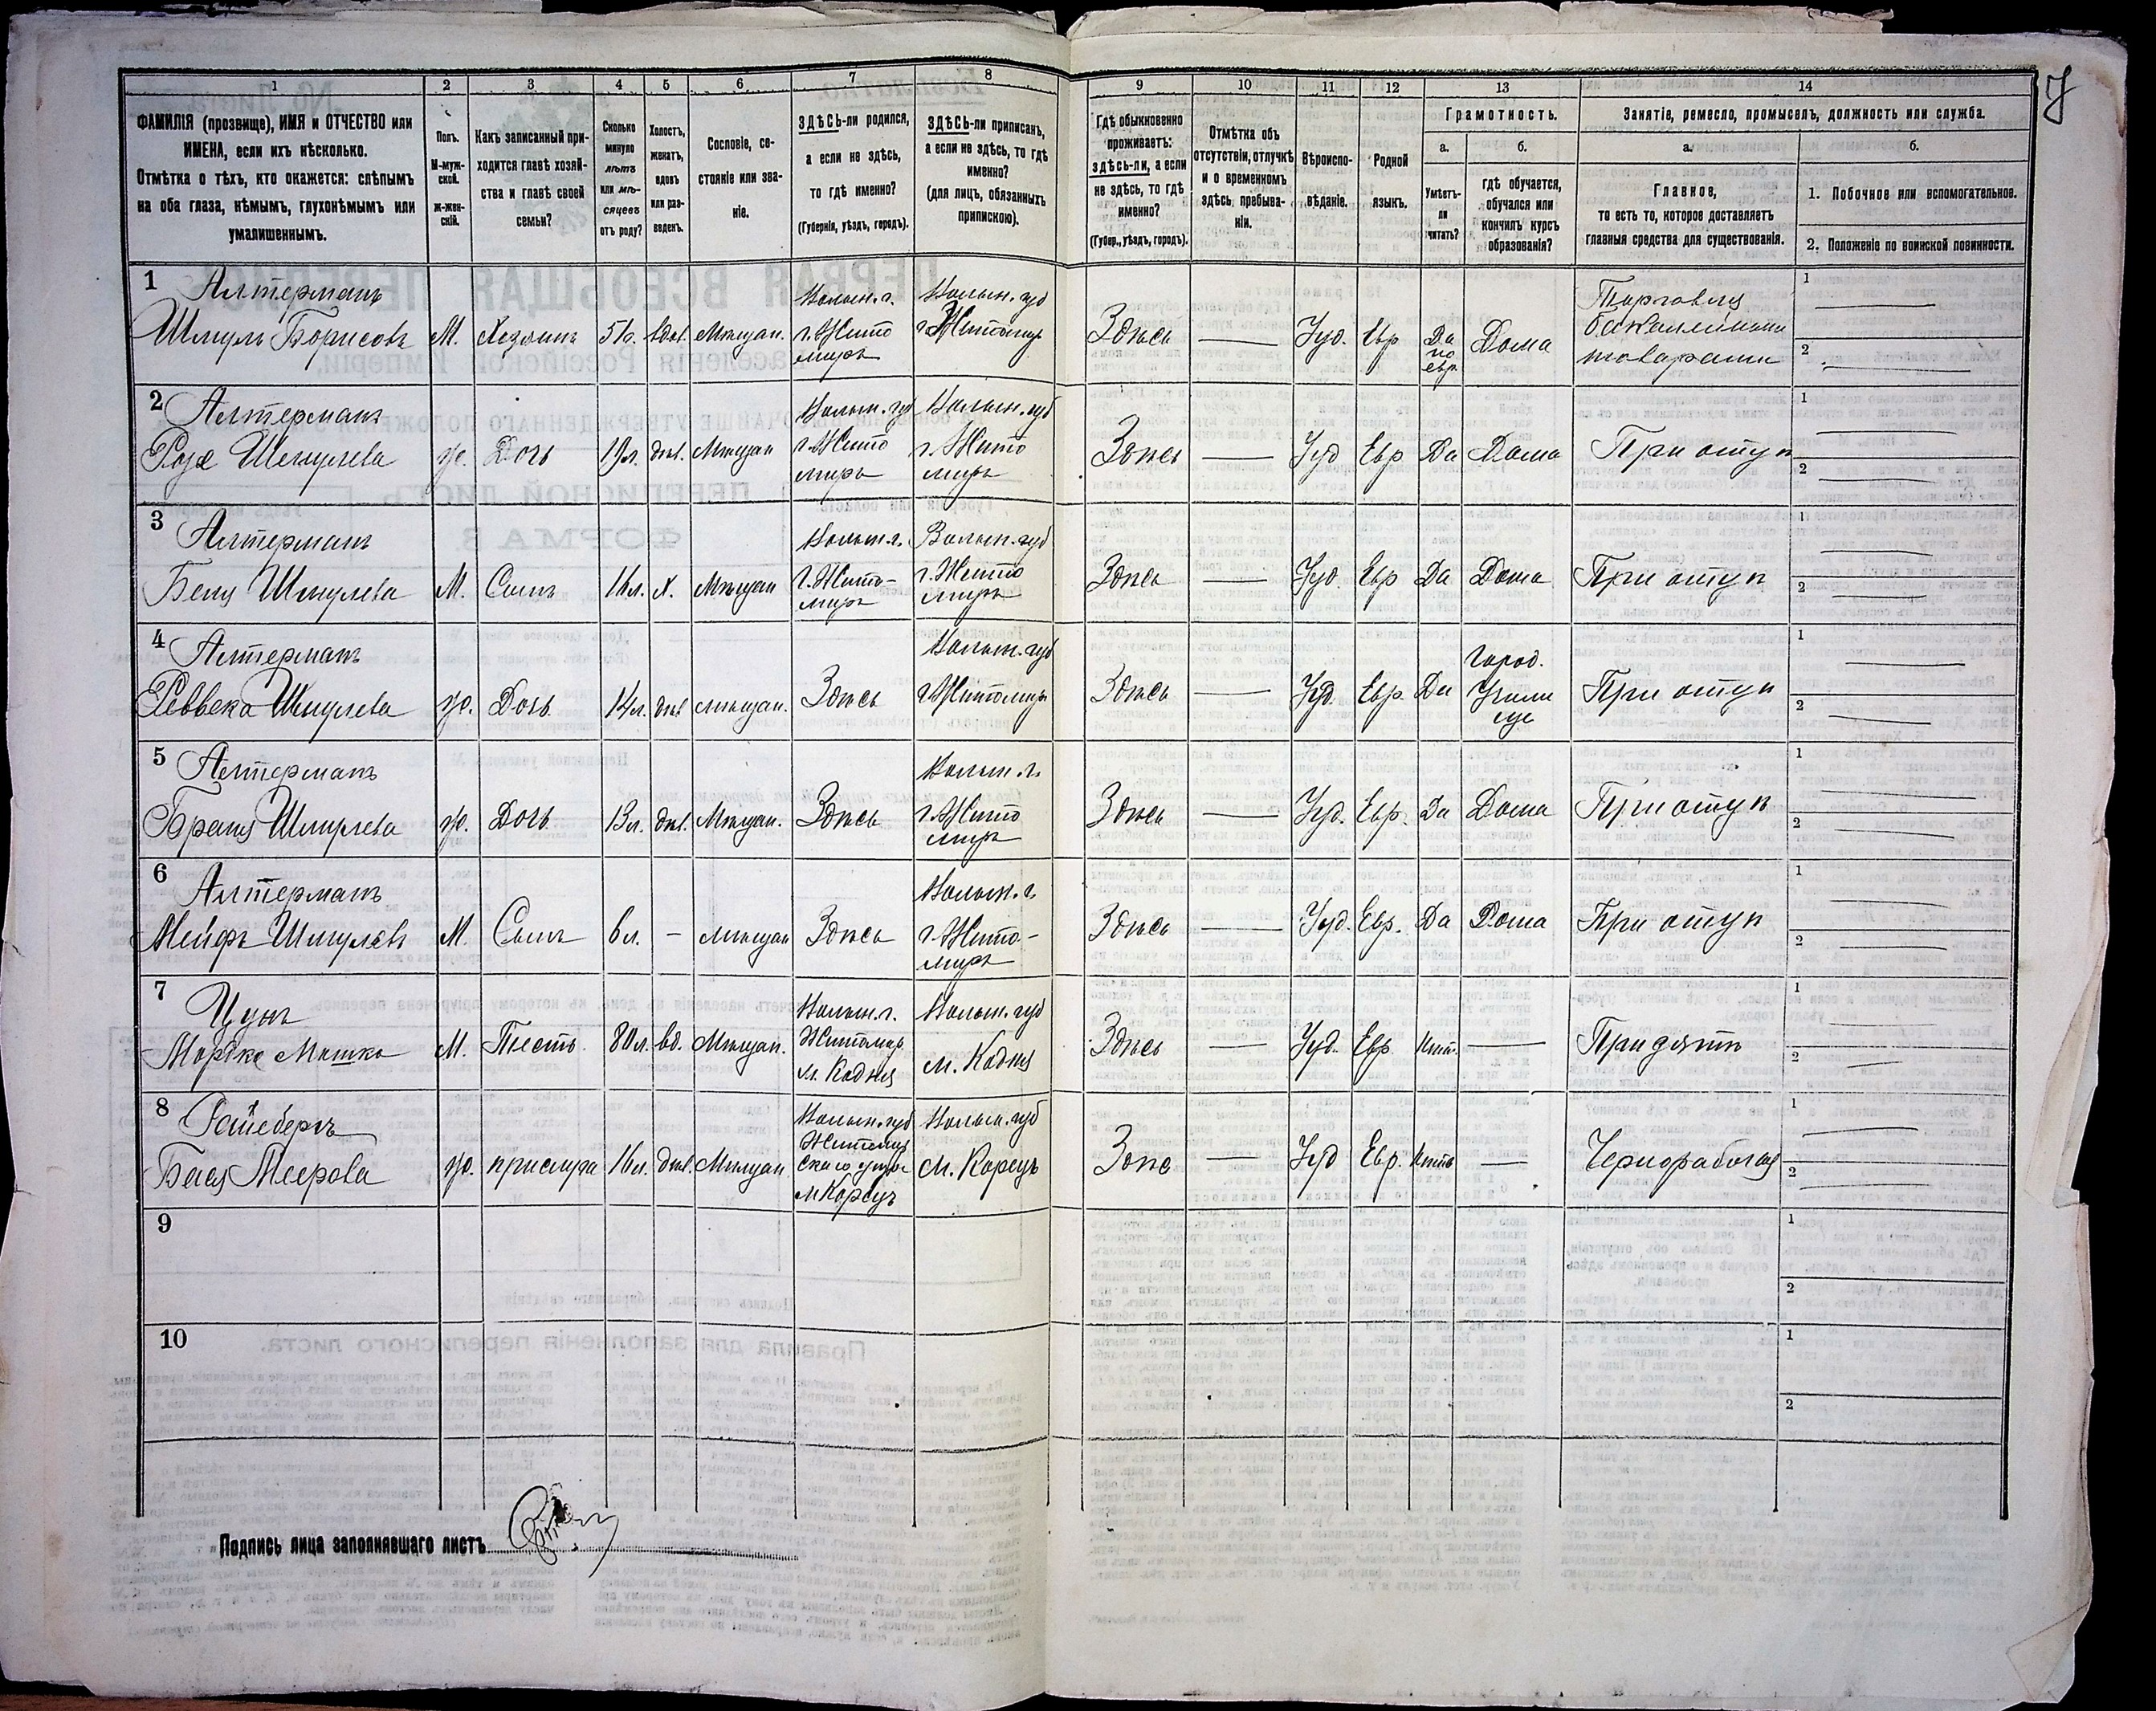 1 2 3 4 5 6 7 8 9 10 11 12 13 14
ФАМИЛІЯ (прозвище), ИМЯ и ОТЧЕСТВО или
ИМЕНА, если ихъ нѣсколько.
Отмѣтка о тѣхъ, кто окажется: слѣпымъ
на оба глаза, нѣмымъ, глухонѣмымъ или
умалишеннымъ.
Полъ.
М-муж-
ской.
ж-жен-
скій.
Какъ записанный при-
ходится главѣ хозяй-
ства и главѣ своей
семьи?
Сколько
минуло
лѣтъ
или мѣ-
сяцевъ
отъ роду?
Холостъ,
женатъ,
вдовъ
или раз-
веденъ.
Сословіе, со-
стояніе или зва-
ніе.
ЗДѢСЬ-ли родился,
а если не здѣсь,
то гдѣ именно?
(Губернія, уѣздъ, городъ).
ЗДѢСЬ-ли приписанъ,
а если не здѣсь, то гдѣ
именно?
(для лицъ, обязанныхъ
припискою).
Гдѣ обыкновенно
проживаетъ:
здѣсь-ли, а если
не здѣсь, то гдѣ
именно?
(Губер., уѣздъ, городъ).
Отмѣтка объ
отсутствіи, отлучкѣ
и о временномъ
здѣсь пребыва-
ніи.
Вѣроиспо-
вѣданіе.
Родной
языкъ.
Грамотность.
а.
Умѣетъ-
ли
читать?
б.
гдѣ обучается,
обучался или
кончилъ курсъ
образованія?
Занятіе, ремесло, промыселъ, должность или служба.
а.
Главное,
то есть то, которое доставляетъ
главныя средства для существованія.
б.
1. Побочное или вспомогательное.
2. Положеніе по воинской повинности.
1 Алтерманъ
Шмуль Борисовъ М. Хозяинъ вдов. Мѣщан.
Волын. г.
г. Жито
миръ
Волын. губ
г. Житомир
Здѣсь Іуд. Евр
Да
по
евр.
Дома
Торговля
бакалейными
товарами
1
2
2 Алтерманъ
Шмулева Дочь 19 л. дѣв. Мѣщан
Волын. губ
г. Жито
миръ
Волын. губ
г. Жито
миръ
Здѣсь Іуд Евр Да Дома При отцѣ
1
2
3 Алтерманъ
Шмулева М. Сынъ 16 л. х. Мѣщан
Волын. г.
г. Жито-
миръ
Волын. губ
г. Жито
миръ
Здѣсь Іуд Евр Да Дома При отцѣ
1
2
4 Алтерманъ
Реввека Шмулева Дочь 14 л. дѣв мѣщан. Здѣсь
Волын. губ
г. Житомиръ
Здѣсь Іуд. Евр. Да
Город.
Учили
ще
При отцѣ
1
2
5 Алтерманъ
Шмулева Дочь 13 л. дѣв. Мѣщан. Здѣсь
Волын. г.
г. Жито
миръ
Здѣсь Іуд. Евр. Да Дома При отцѣ
1
2
6 Алтерманъ
Шмулевъ М. Сынъ 6 л. – мѣщан Здѣсь
Волын. г.
г. Жито-
миръ
Здѣсь Іуд. Евр. Да Дома При отцѣ
1
2
7
М. Тесть 80 л. вд. Мѣщан.
Волын. г.
Житомир.
м. Кодня
Волын. губ
м. Кодня
Здѣсь Іуд. Евр. Нѣт. При зятѣ
1
2
8
Бася Меерова прислуга 16 л. дѣв. Мѣщан
Волын. губ
Житомир
скаго уѣзд
м Корец
Волын. губ
м. Корец
Здѣс Іуд Евр. Нѣтъ Чернорабочая
1
2
9
1
2
10
1
2
Подпись лица заполнявшаго листъ